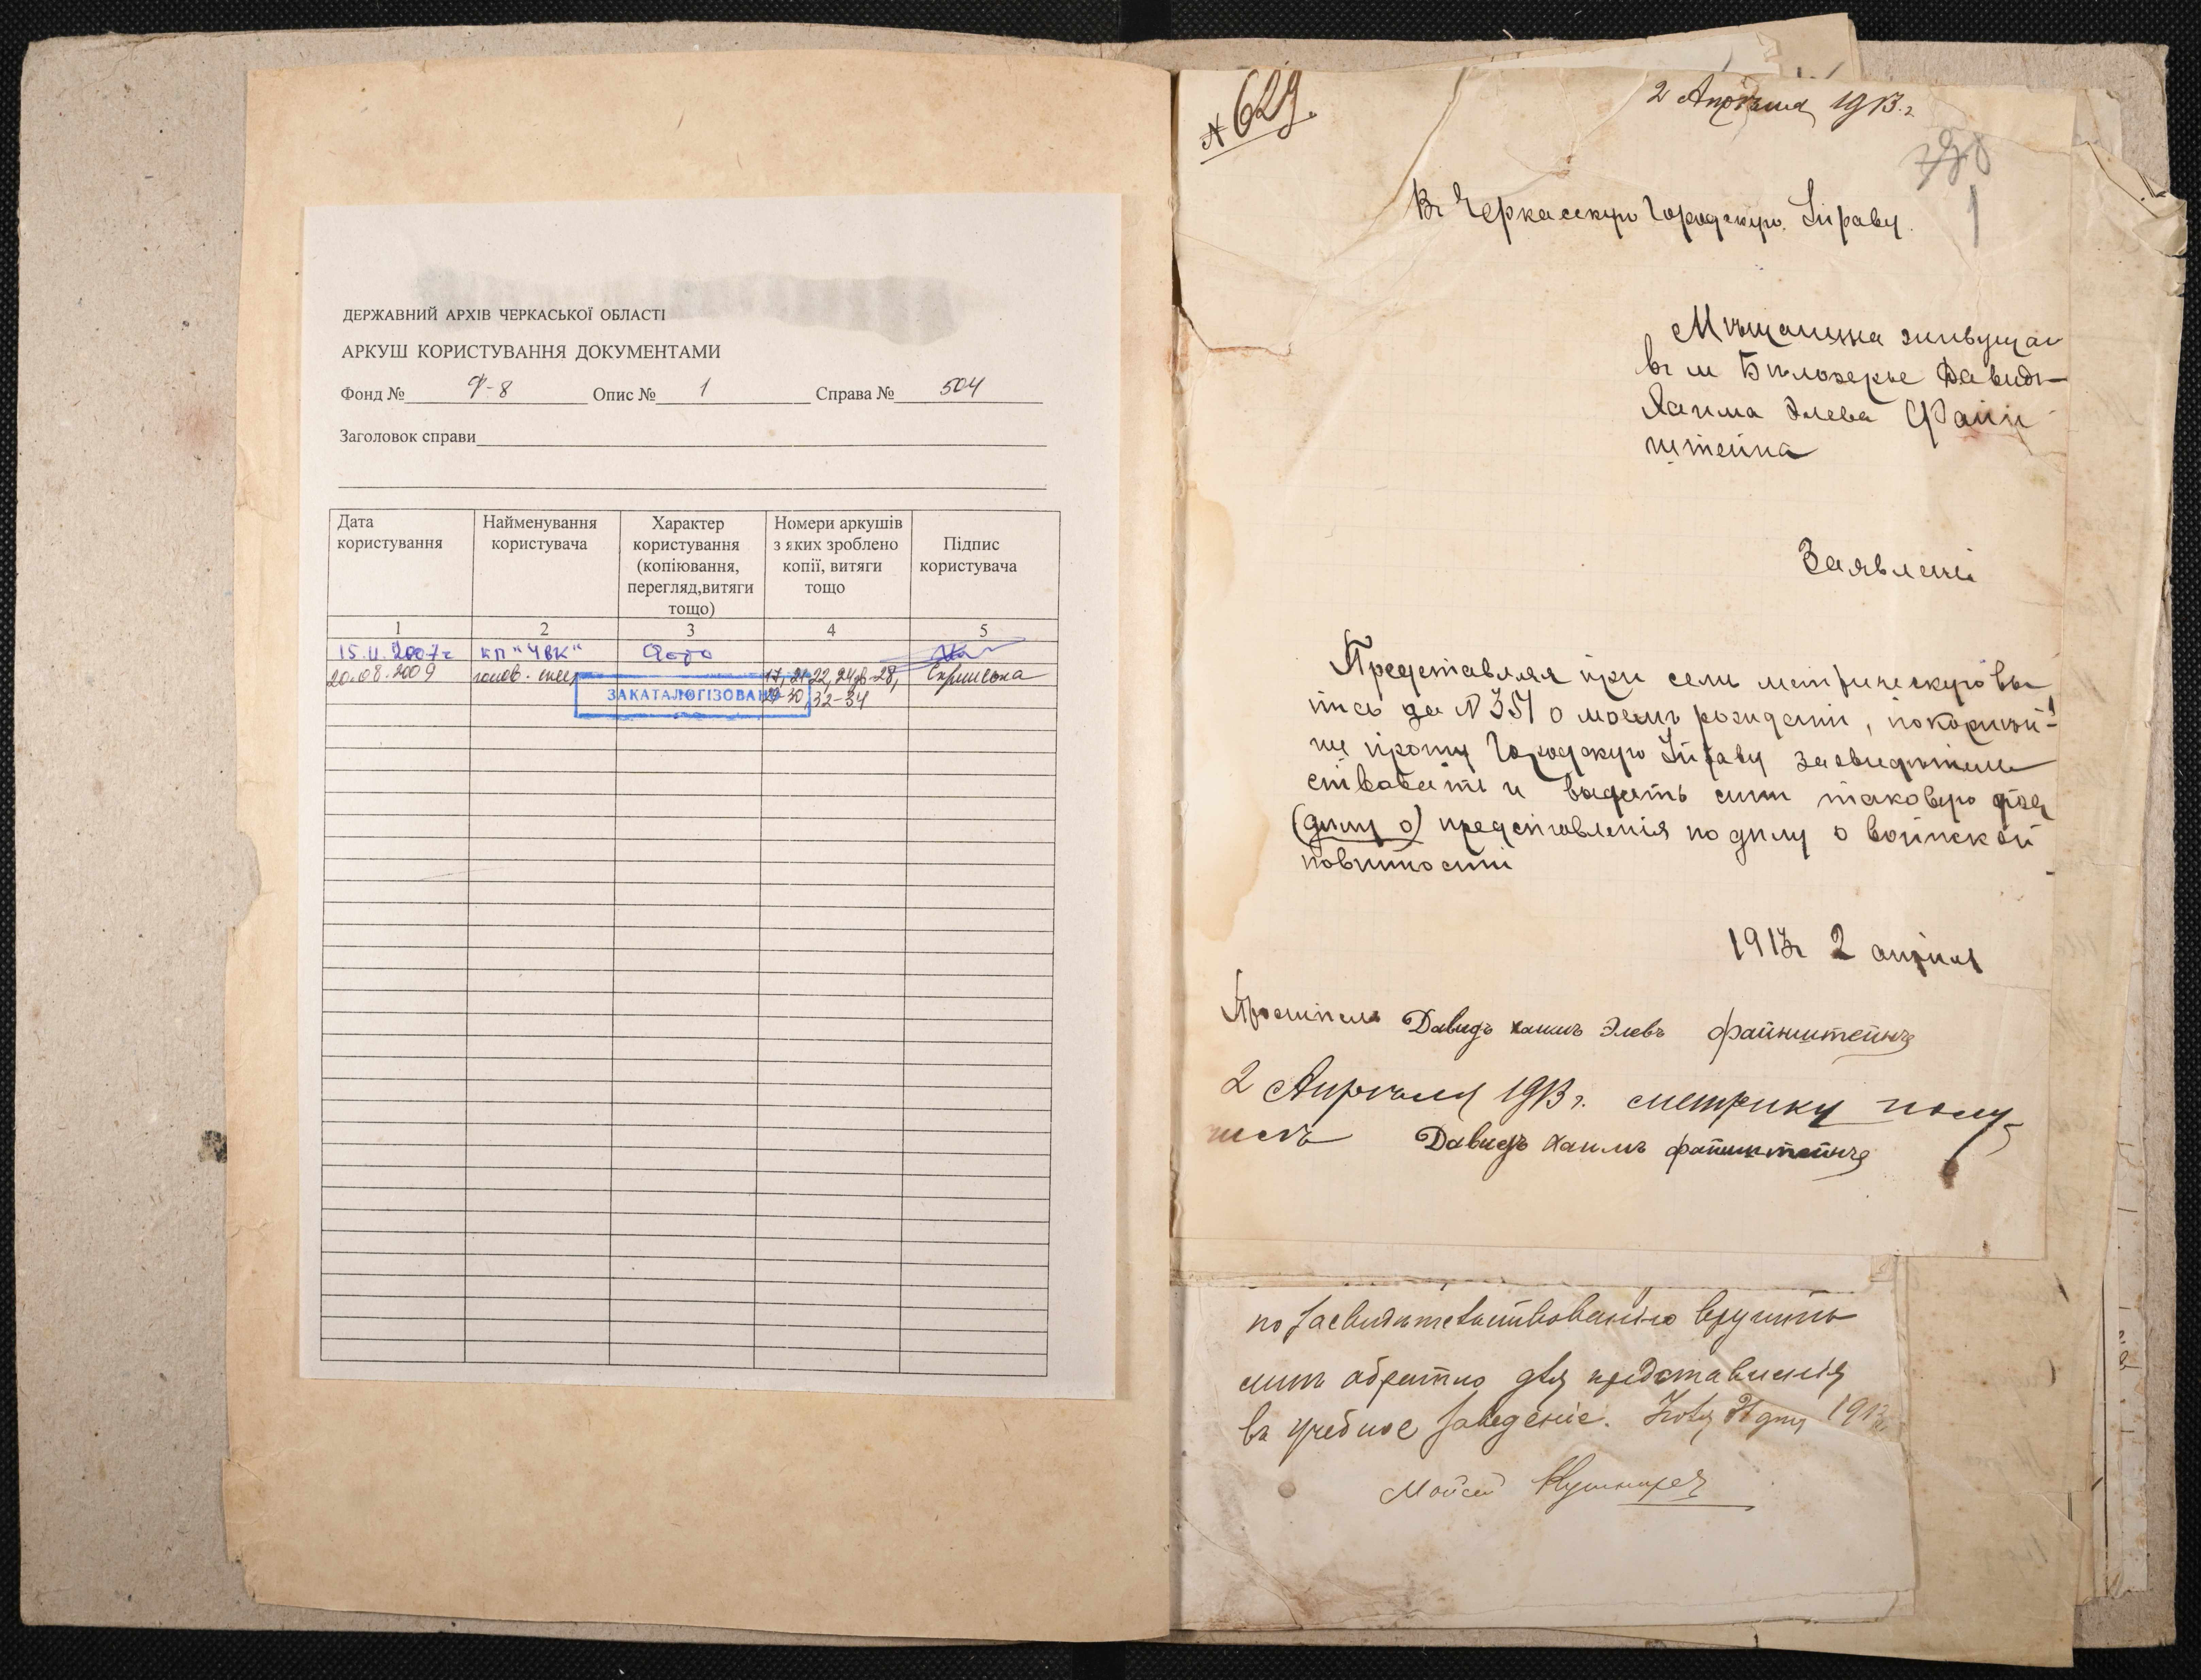 ДЕРЖАВНИЙ АРХІВ ЧЕРКАСЬКОЇ ОБЛАСТІ
АРКУШ КОРИСТУВАННЯ ДОКУМЕНТАМИ
Фонд № Ф-8 Опис № 1 Справа № 504
Заголовок справи
Дата користування
Найменування користувача
Характер користування (копіювання, перегляд,витяги тощо)
Номери аркушів з яких зроблено копії, витяги тощо
Підпис користувача
1 2 3 4 5
15.11.2007г КП "ЧВК"
20.08.2009 17, 21-22, 28,
ЗАКАТАЛОГІЗОВАНО
32-34
№ 629.
2 Апрѣля 1913 г.
1
Въ Черкасскую Городскую Управу.
Мѣщанина живущаи
въ м Бѣлозерье Давидъ-
Хаима Элева Файн
штейна
Заявленi
Представляя при семъ метрическую вы
пись за № 351 о моемъ рождении, покорнѣй-
ше прошу Городскую Управу засвидѣтель
ствовать и выдать мнѣ таковую для
(дѣлу о) представленія по дѣлу о воинской
повинности
1913г 2 апрѣля
Проситель Давидъ хаимъ Элевъ файнштейнъ
2 Апрѣля 1913 г. метрику полу
чилъ Давидъ Хаимъ файнштейнъ
по засвидѣтельствованію вручить
мнѣ обратно для представленія
въ учебное заведеніе. дня 1913
Мойсей Кушниреъ